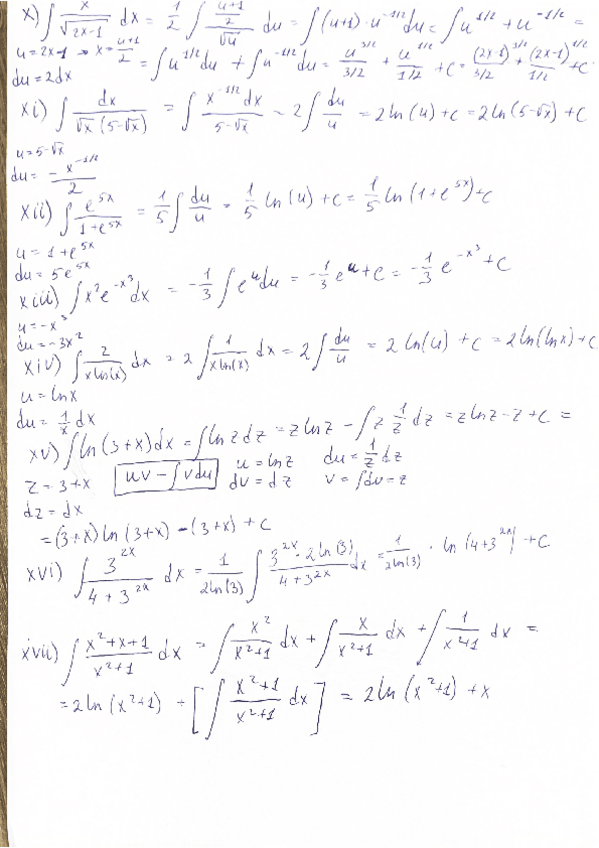 x) ∫ x/√(2x-1) dx = 1/2 ∫ ((u+1)/2)/√u du = ∫(u+1)·u^(-1/2) du = ∫u^(1/2) + u^(-1/2) =
u = 2x-1 → x = (u+1)/2 = ∫u^(1/2) du + ∫u^(-1/2) du = u^(3/2)/(3/2) + u^(1/2)/(1/2) + C = (2x-1)^(3/2)/(3/2) + (2x-1)^(1/2)/(1/2) + C
du = 2dx
xi) ∫ dx/(√x (5-√x)) = ∫ x^(-1/2) dx/(5-√x) - 2∫ du/u = 2ln(u) + C = 2ln(5-√x) + C
u = 5-√x
du = - x^(-1/2)/2
xii) ∫ e^(5x)/(1+e^(5x)) = 1/5 ∫ du/u = 1/5 ln(u) + C = 1/5 ln(1+e^(5x)) + C
u = 1+e^(5x)
du = 5e^(5x)
xiii) ∫x²e^(-x³) dx = -1/3 ∫e^u du = -1/3 e^u + C = -1/3 e^(-x³) + C
u = -x³
du = -3x²
xiv) ∫ 2/(x ln(x)) dx = 2∫ 1/(x ln(x)) dx = 2∫ du/u = 2 ln(u) + C = 2ln(lnx) + C
u = lnx
du = 1/x dx
xv) ∫ln(3+x)dx = ∫lnz dz = z lnz - ∫z 1/z dz = z lnz - z + C =
z = 3+x uv - ∫v du u = lnz du = 1/z dz
dz = dx dv = dz v = ∫dv = z
= (3+x) ln(3+x) - (3+x) + C
xvi) ∫ 3^(2x)/(4+3^(2x)) dx = 1/(2ln(3)) ∫ (3^(2x) · 2ln(3))/(4+3^(2x)) dx = 1/(2ln(3)) · ln|4+3^(2x)| + C
xvii) ∫ (x²+x+1)/(x²+1) dx = ∫ x²/(x²+1) dx + ∫ x/(x²+1) dx + ∫ 1/(x²+1) dx =
= 2ln(x²+1) + [∫ (x²+1)/(x²+1) dx] = 2ln(x²+1) + x